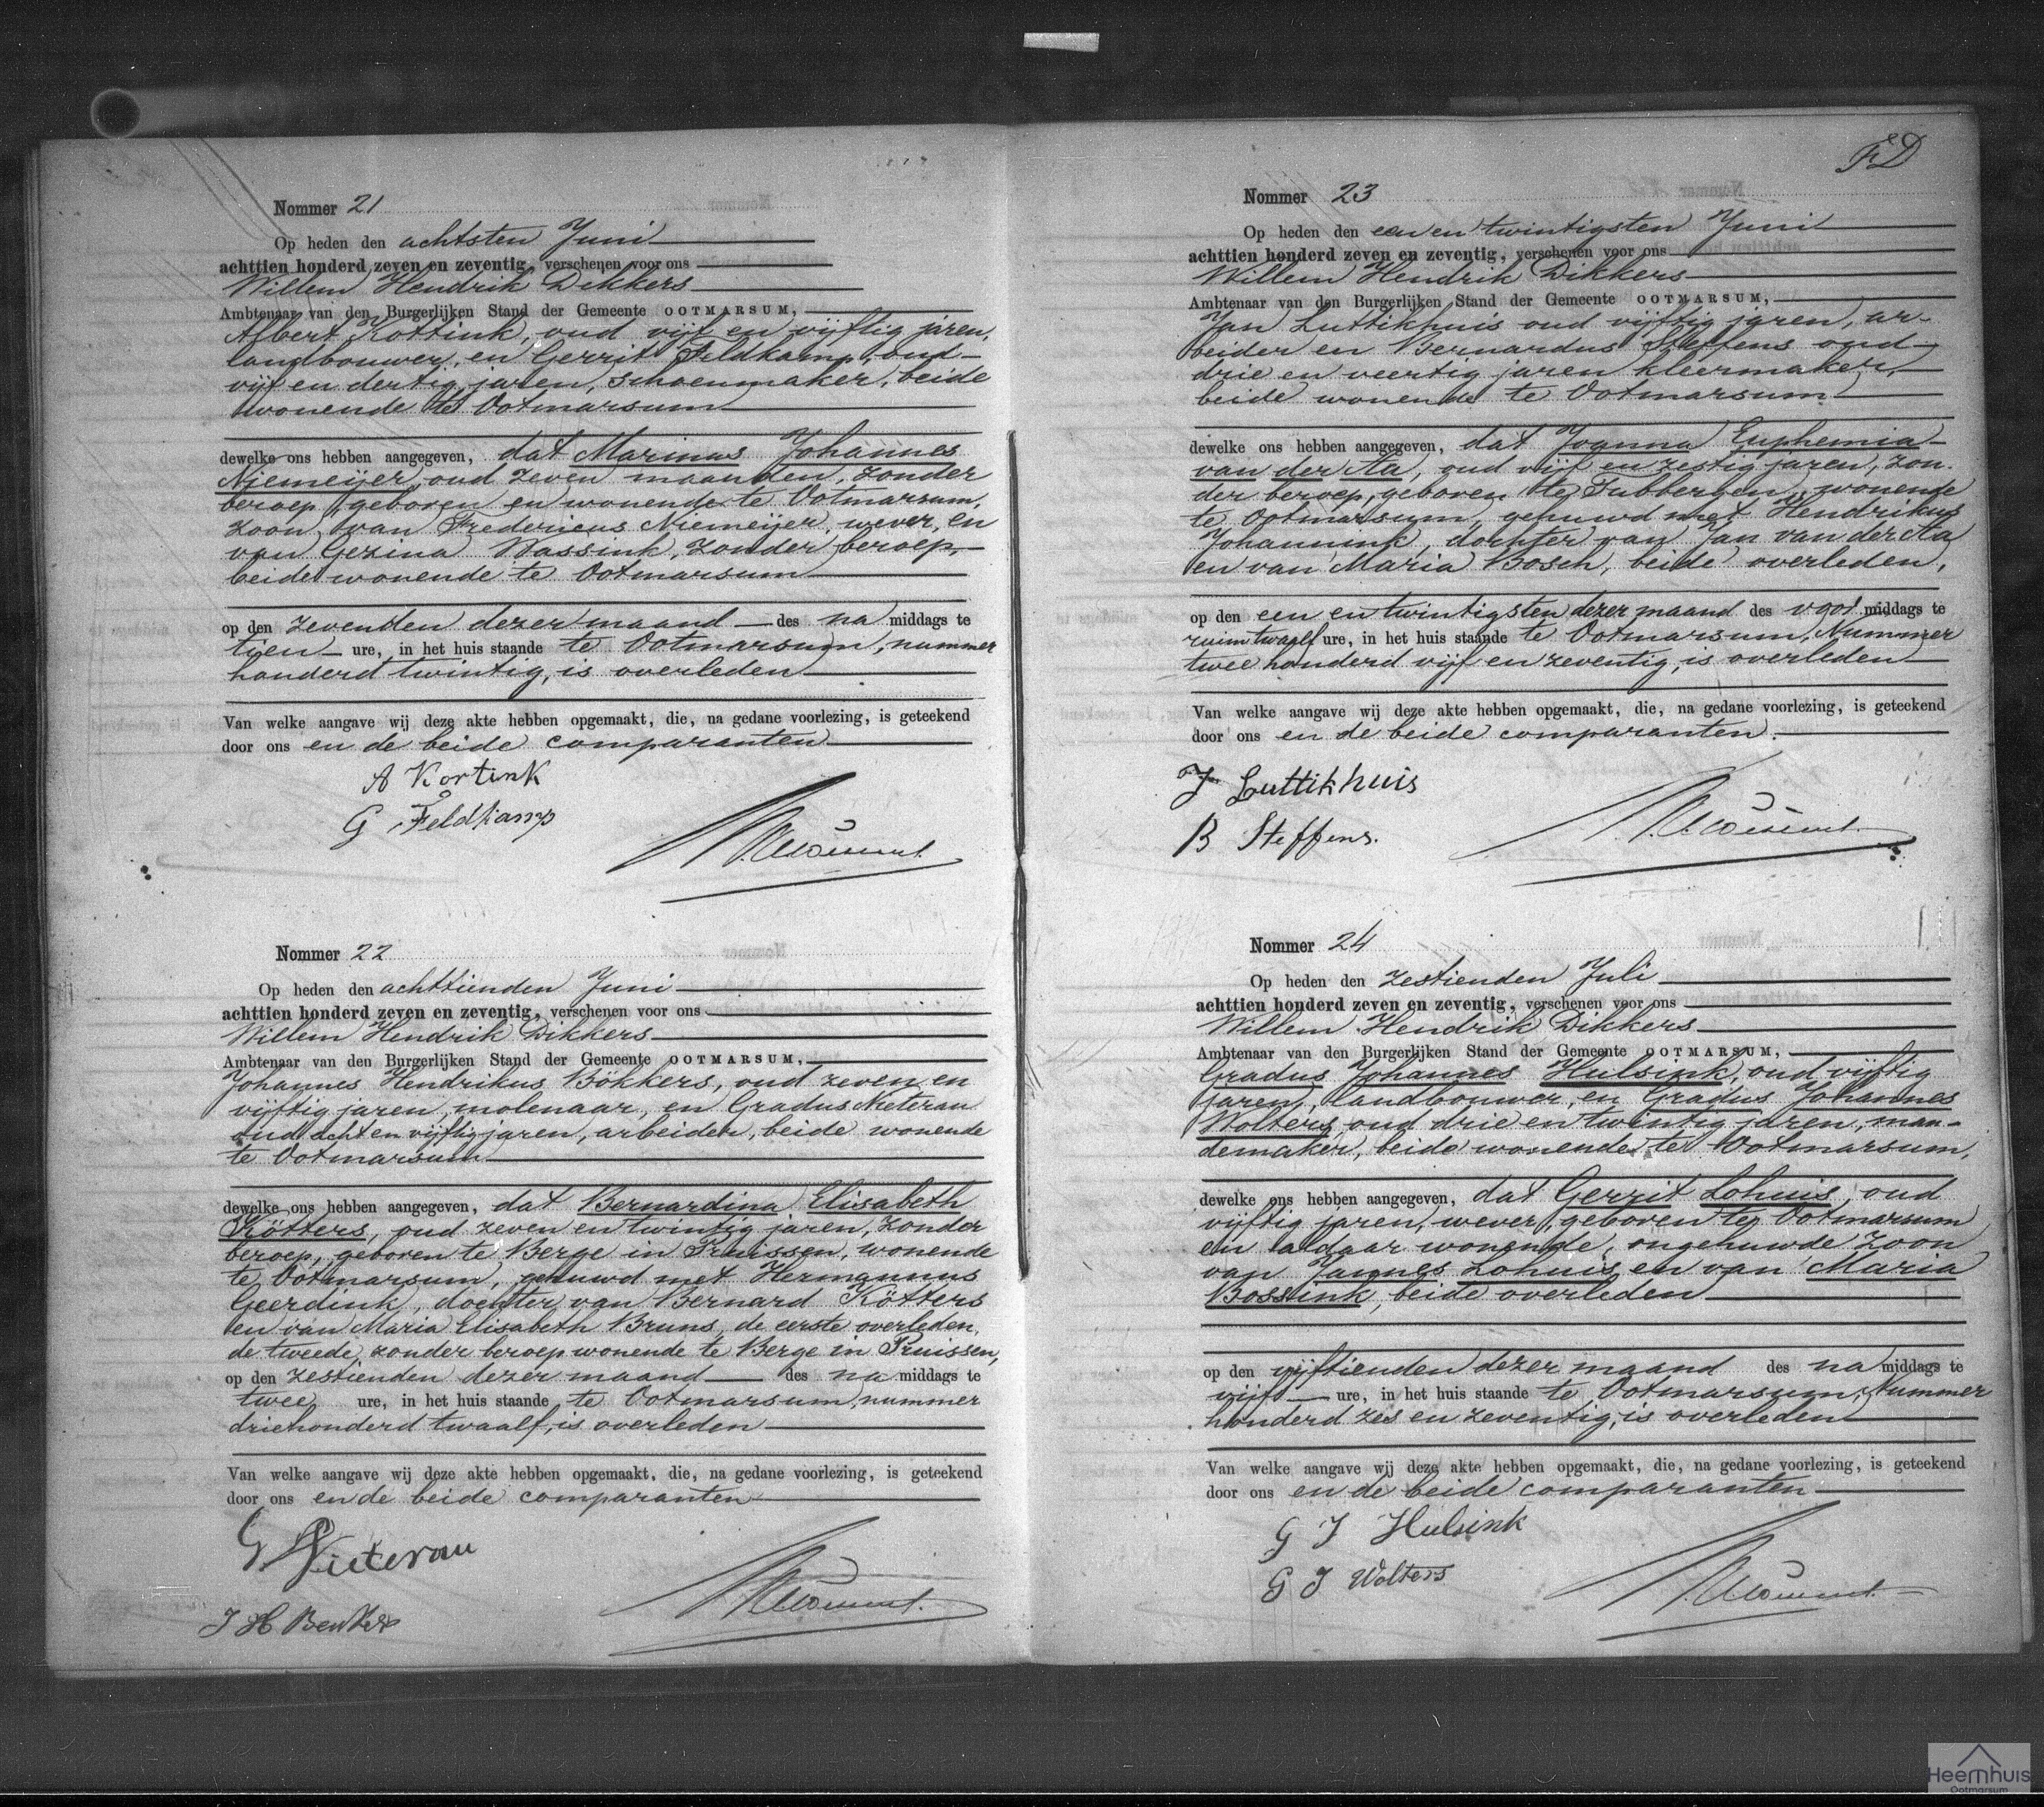 Nommer 21
Op heden den achtsten Juni
achttien honderd zeven en zeventig, verschenen voor ons
Willem Hendrik Dikkers
Ambtenaar van den Burgerlijken Stand der Gemeente OOTMARSUM,
Albert Kottink, oud vijf en vijftig jaren,
landbouwer, en Gerrit Feldkamp, oud
vijf en dertig jaren, schoenmaker, beide
wonende te Ootmarsum
dewelke ons hebben aangegeven, dat Marinus Johannes
Niemeijer, oud zeven maanden, zonder
beroep, geboren en wonende te Ootmarsum,
zoon van Fredericus Niemeijer, wever, en
van Gezina Wassink, zonder beroep,
beide wonende te Ootmarsum
op den zevenden dezer maand des na middags te
tien ure, in het huis staande te Ootmarsum, nummer
honderd twintig, is overleden
Van welke aangave wij deze akte hebben opgemaakt, die, na gedane voorlezing, is geteekend
door ons en de beide comparanten
A Kortink
G Feldkamp
Nommer 22
Op heden den achttienden Juni
achttien honderd zeven en zeventig, verschenen voor ons
Willem Hendrik Dikkers
Ambtenaar van den Burgerlijken Stand der Gemeente OOTMARSUM,
Johannes Hendrikus Bökkers, oud zeven en
vijftig jaren, molenaar, en Gradus Nieterau
oud acht en vijftig jaren, arbeider, beide wonende
te Ootmarsum
dewelke ons hebben aangegeven, dat Bernardina Elisabeth
Kötters, oud zeven en twintig jaren, zonder
beroep, geboren te Berge in Pruissen, wonende
te Ootmarsum, gehuwd met Hermannus
Geerdink, dochter van Bernard Kötters
en van Maria Elisabeth Bruns, de eerste overleden,
de tweede zonder beroep wonende te Berge in Pruissen,
op den zestienden dezer maand des na middags te
twee ure, in het huis staande te Ootmarsum, nummer
driehonderd twaalf, is overleden
Van welke aangave wij deze akte hebben opgemaakt, die, na gedane voorlezing, is geteekend
door ons en de beide comparanten
G Nieterau
J H
F&D
Nommer 23
Op heden den een en twintigsten Juni
achttien honderd zeven en zeventig, verschenen voor ons
Willem Hendrik Dikkers
Ambtenaar van den Burgerlijken Stand der Gemeente OOTMARSUM,
Jan Luttikhuis oud vijftig jaren, ar-
beider en Bernardus Steffens oud
drie en veertig jaren kleermaker,
beide wonende te Ootmarsum
dewelke ons hebben aangegeven, dat Joanna Euphemia
van der Aa, oud vijf en zestig jaren, zon-
der beroep, geboren te Tubbergen, wonende
te Ootmarsum, gehuwd met Hendrikus
Johannink, dochter van Jan van der Aa
en van Maria Bosch, beide overleden,
op den een en twintigsten dezer maand des voor middags te
ruim twaalf ure, in het huis staande te Ootmarsum, Nummer
twee honderd vijf en zeventig, is overleden
Van welke aangave wij deze akte hebben opgemaakt, die, na gedane voorlezing, is geteekend
door ons en de beide comparanten.
J Luttikhuis
B Steffens.
Nommer 24
Op heden den zestienden Juli
achttien honderd zeven en zeventig, verschenen voor ons
Willem Hendrik Dikkers
Ambtenaar van den Burgerlijken Stand der Gemeente OOTMARSUM,
Gradus Johannes Hulsink, oud vijftig
jaren, landbouwer, en Gradus Johannes
Wolters, oud drie en twintig jaren, man-
demaker, beide wonende te Ootmarsum,
dewelke ons hebben aangegeven, dat Gerrit Lohuis, oud
vijftig jaren, wever, geboren te Ootmarsum
en aldaar wonende, ongehuwde zoon
van Jannes Lohuis en van Maria
Bossink, beide overleden
op den vijftienden dezer maand des na middags te
vijf ure, in het huis staande te Ootmarsum, Nummer
honderd zes en zeventig, is overleden
Van welke aangave wij deze akte hebben opgemaakt, die, na gedane voorlezing, is geteekend
door ons en de beide comparanten
G J Hulsink
G J Wolters
Heemhuis
Ootmarsum